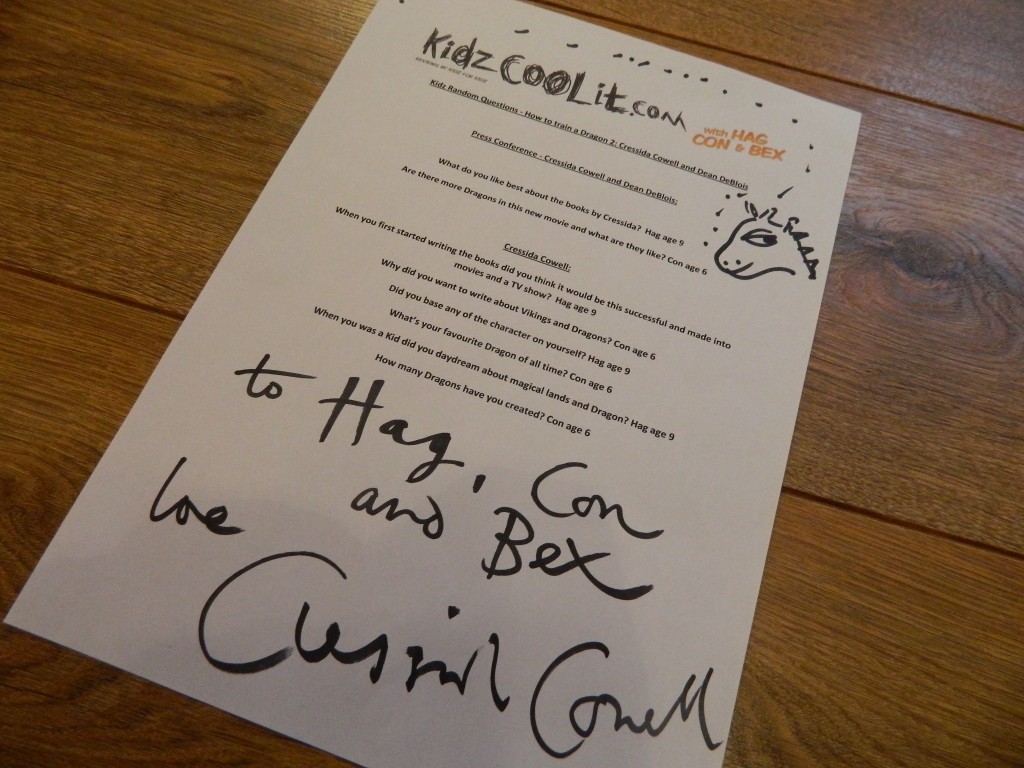 Kidz COOLit.com
REVIEWS BY KIDZ FOR KIDZ
with HAG
CON & BEX
Kidz Random Questions - How to train a Dragon 2: Cressida Cowell and Dean DeBlois
Press Conference - Cressida Cowell and Dean DeBlois:
What do you like best about the books by Cressida? Hag age 9
Are there more Dragons in this new movie and what are they like? Con age 6
Cressida Cowell:
When you first started writing the books did you think it would be this successful and made into
movies and a TV show? Hag age 9
Why did you want to write about Vikings and Dragons? Con age 6
Did you base any of the character on yourself? Hag age 9
What's your favourite Dragon of all time? Con age 6
When you was a Kid did you daydream about magical lands and Dragon? Hag age 9
How many Dragons have you created? Con age 6
to Hag, Con
and Bex
love
Cressida Cowell